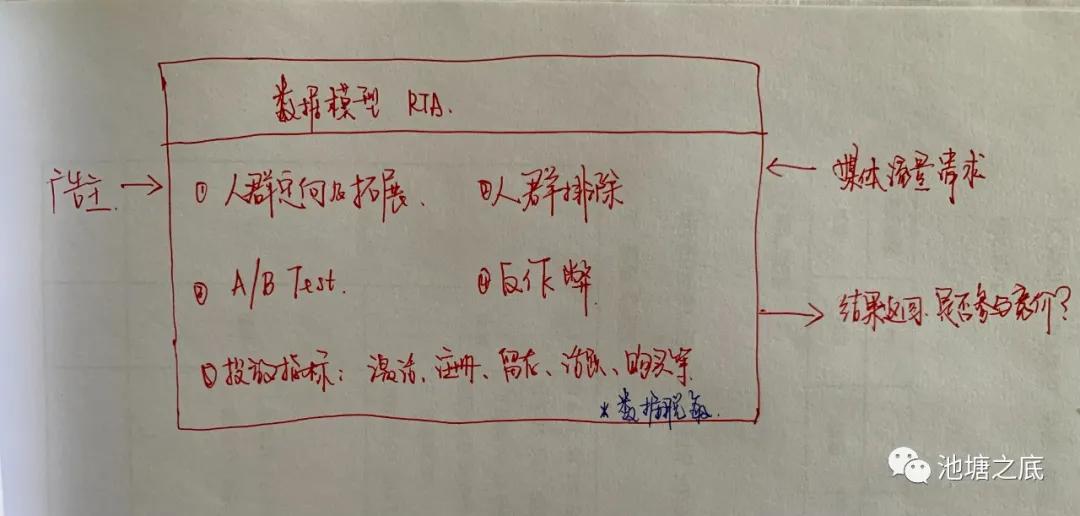 数据模型 RTA.
广告主
① 人群定向及拓展. ②人群排除
媒体流量请求
③ A/B Test. ④反作弊.
结果返回. 是否参与竞价?
⑤投放指标: 激活、注册、留存、活跃、购买率
*数据脱敏.
池塘之底